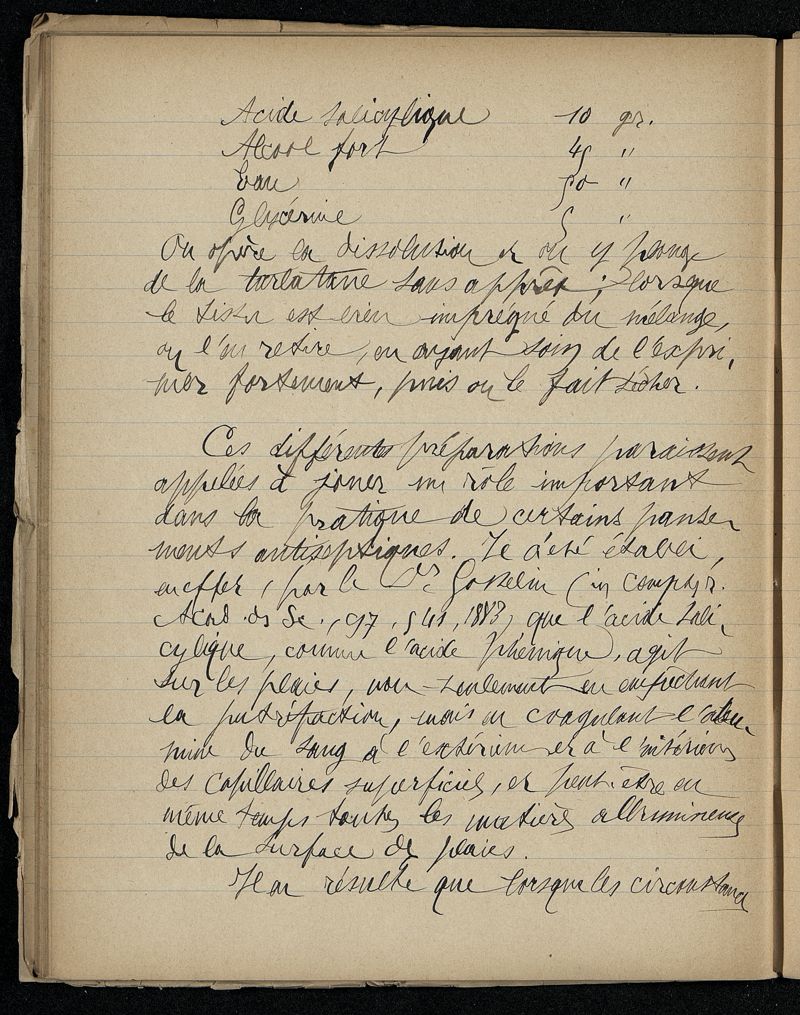 Acide salicylique 10 gr.
Alcool fort 45 "
Eau 50 "
Glycérine 5 "
On opère la dissolution et on y plonge
de la tarlatane sans apprêt ; lorsque
le tissu est bien imprégné du mélange,
on l'en retire, en ayant soin de l'expri-
mer fortement, puis on le fait sécher.
Ces différentes préparations paraissent
appelées à jouer un rôle important
dans la pratique de certains panse-
ments antiseptiques. Il a été établi,
en effet, par le Dr Gosselin (in compt. r.
Acad. ds Sc., 97, 541, 1883) que l'acide sali-
cylique, comme l'acide phénique, agit
sur les plaies, non-seulement en empêchant
la putréfaction, mais en coagulant l'albu-
mine du sang à l'extérieur et à l'intérieur
des capillaires superficiels, et peut-être en
même temps toutes les matières albumineuses
de la surface de plaies.
Il en résulte que lorsque les circonstances